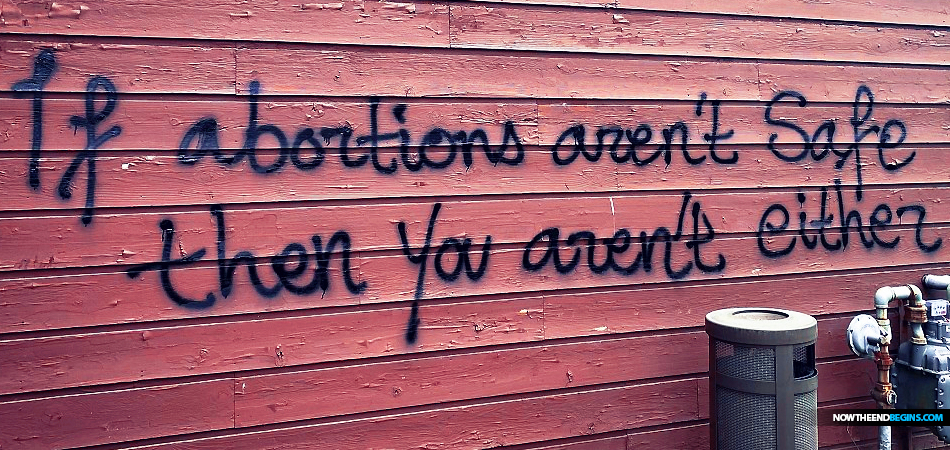 If abortions aren't Safe
then you aren't either
NOWTHEENDBEGINS.COM